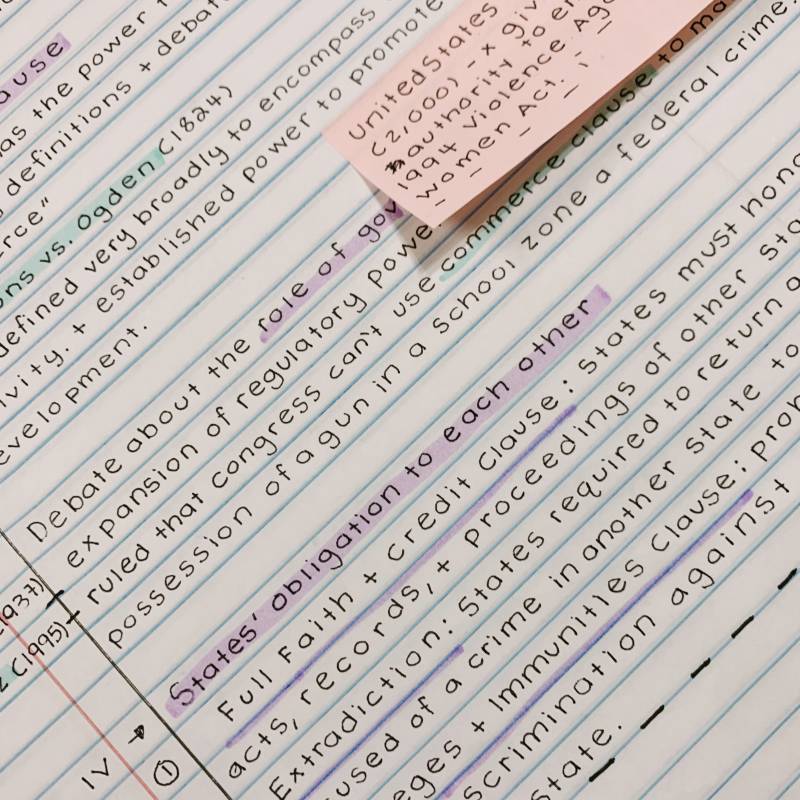 ause
as the power
definitions + debat
rce"
ons vs. Ogden (1824)
defined very broadly to encompass
ivity. + established power to promote
evelopment.
United States
(2,000) - x giv
authority to en
1994 Violence Aga
Women Act.
Debate about the role of gov
expansion of regulatory power.
(1937)
ruled that congress can't use commerce clause to ma
(1995)
possession of a gun in a school zone a federal crime
States' obligation to each other
IV → Full Faith + Credit Clause: States must hono
① acts, records, + proceedings of other sta
Extradiction: States required to return a
used of a crime in another state to
eges + Immunities Clause: proh
scrimination against
state.